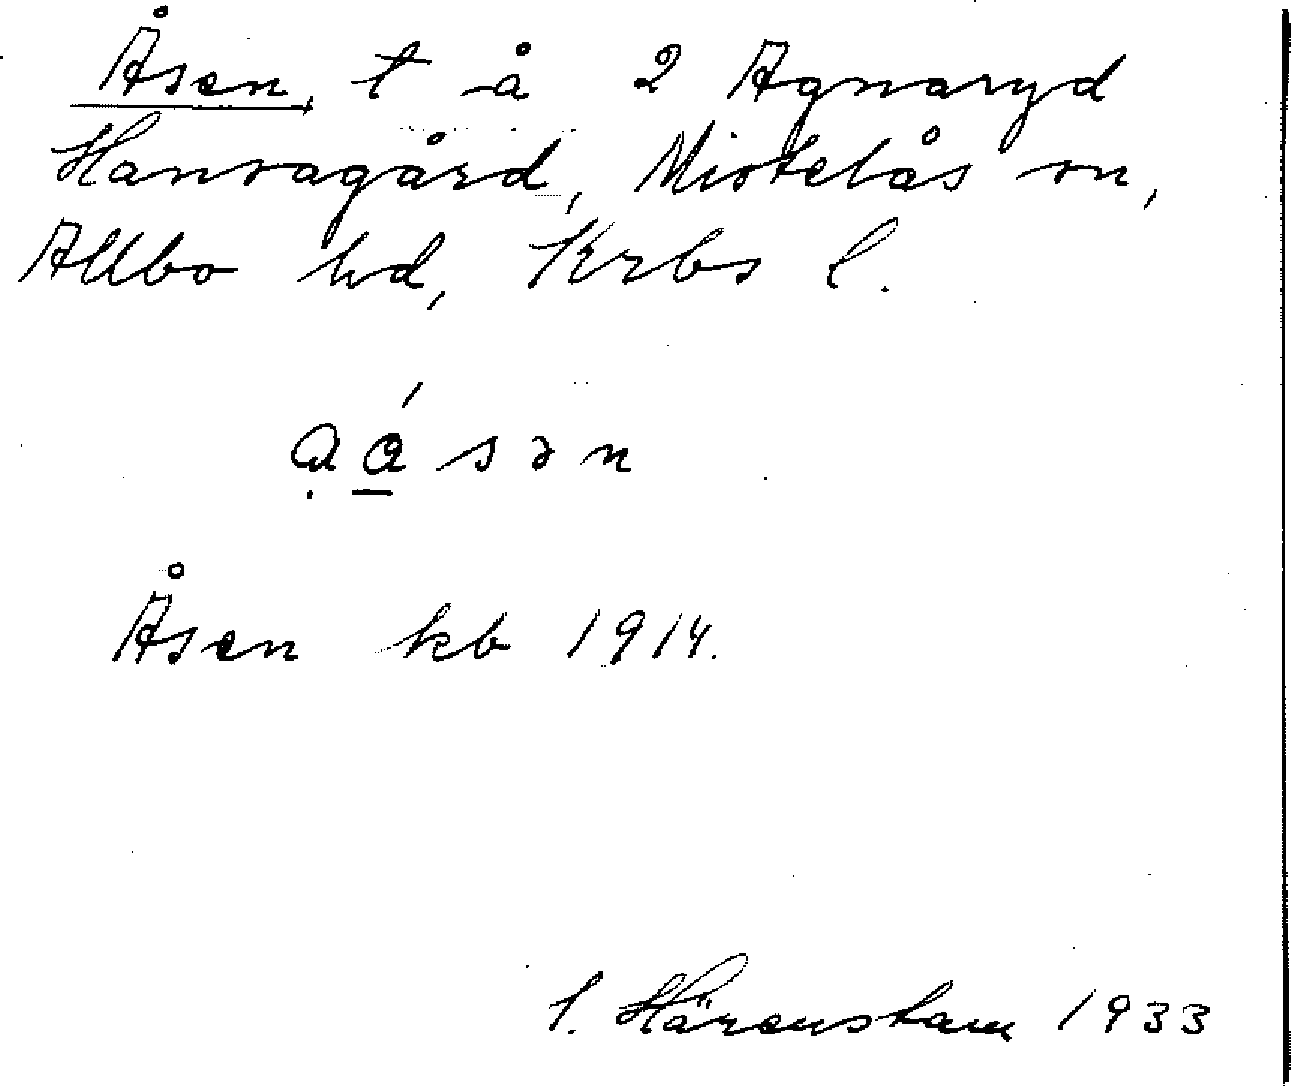 Åsen, t å 2 Agnaryd
Hansagård, Mistelås sn,
Allbo hd, Krbs l.
ạá̲sən
Åsen kb 1914.
S. Härenstam 1933